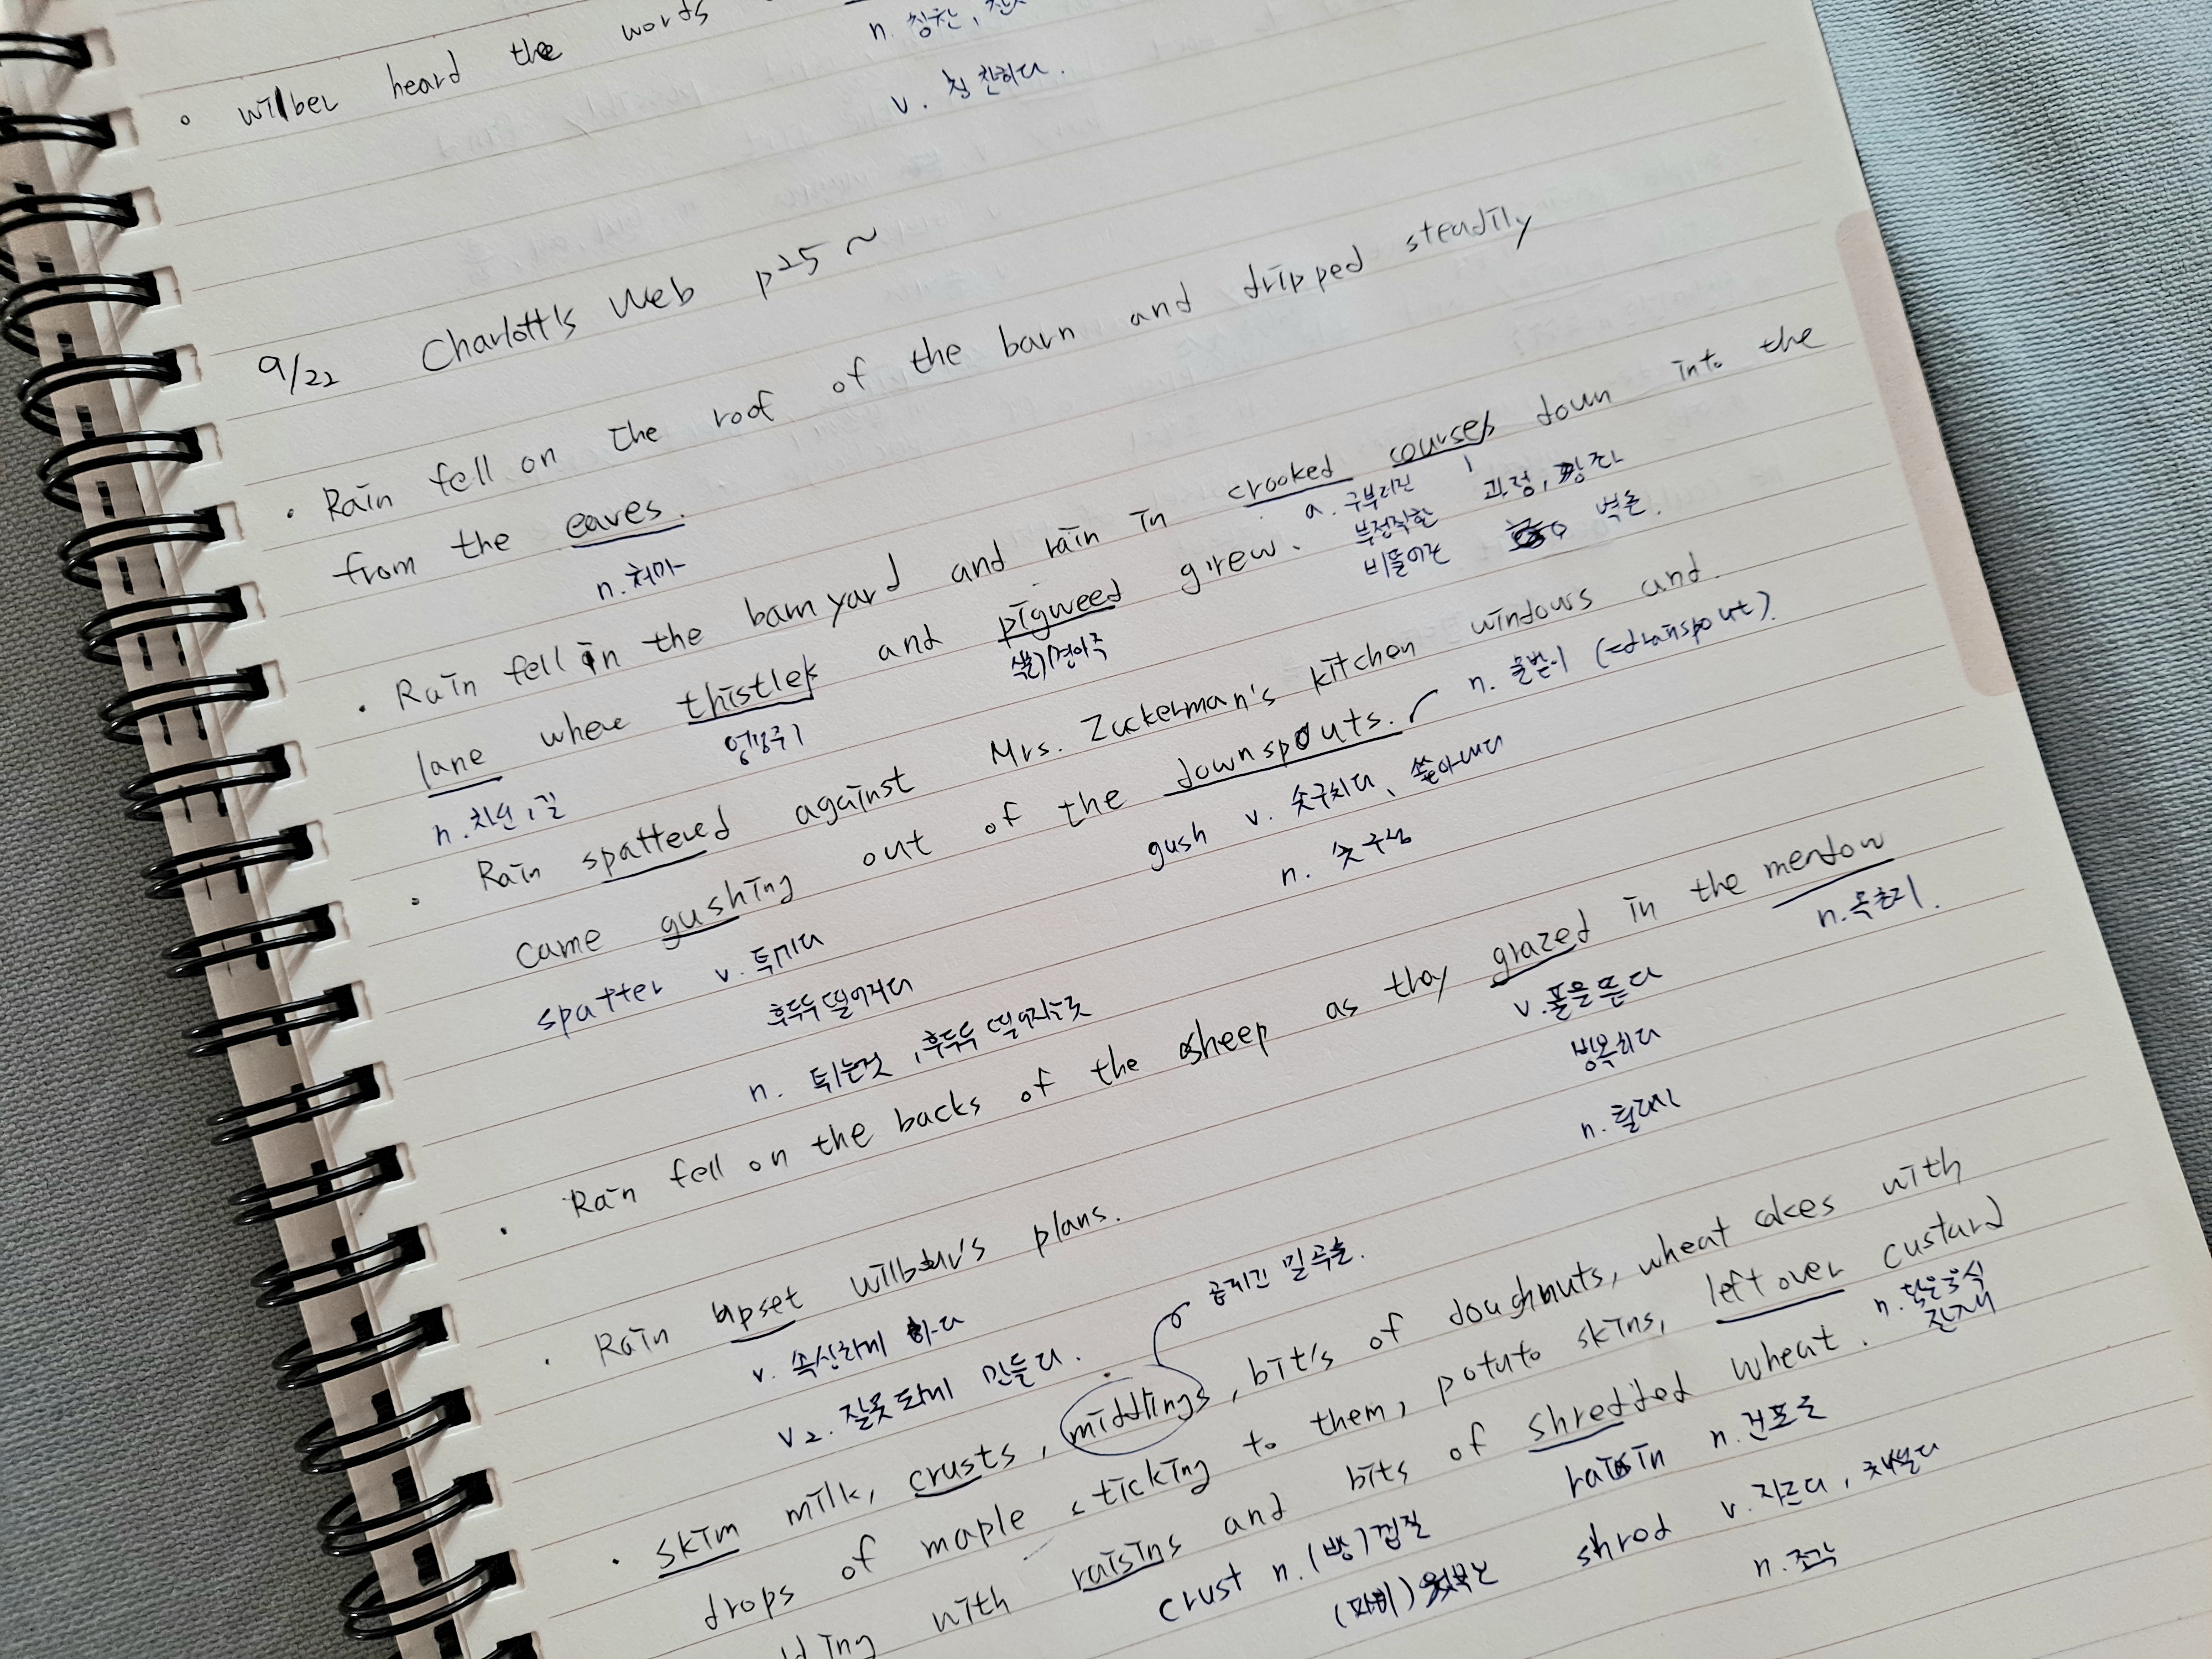 n. 칭찬, 찬사
• wilber heard the words
v. 칭찬하다.
9/22 Charlott's Web p25~
• Rain fell on the roof of the barn and dripped steadily
from the eaves.
n. 처마
• Rain fell in the barnyard and rain in crooked courses down into the
a. 구부러진 과정, 강좌
부정직한 벽돌.
비뚤어진
lane where thistles and pigweed grew.
n. 차선, 길 엉겅퀴 명아주
• Rain spattered against Mrs. Zuckerman's kitchen windows and
came gushing out of the downspouts. n. 물받이 (=drainspout).
gush v. 솟구치다, 쏟아내다
n. 솟구침
spatter v. 튀기다
후두두 떨어지다
n. 튀는것, 후두두 떨어지는 것
• Rain fell on the backs of the sheep as thay grazed in the meadow
v. 풀을 뜯다 n. 목초지.
방목하다
n. 찰과상
• Rain upset wilbur's plans.
v. 속상하게 하다
v2. 잘못되게 만들다.
굵게간 밀곡물.
• skim milk, crusts, middlings, bit's of doughnuts, wheat cakes with
drops of maple sticking to them, potato skins, left over custard
n. 남은음식
잔재
dding with raisins and bits of shredded wheat.
raisin n. 건포도
crust n. (빵)껍질
(파이) 윗부분
shred v. 자르다, 채썰다
n. 조각